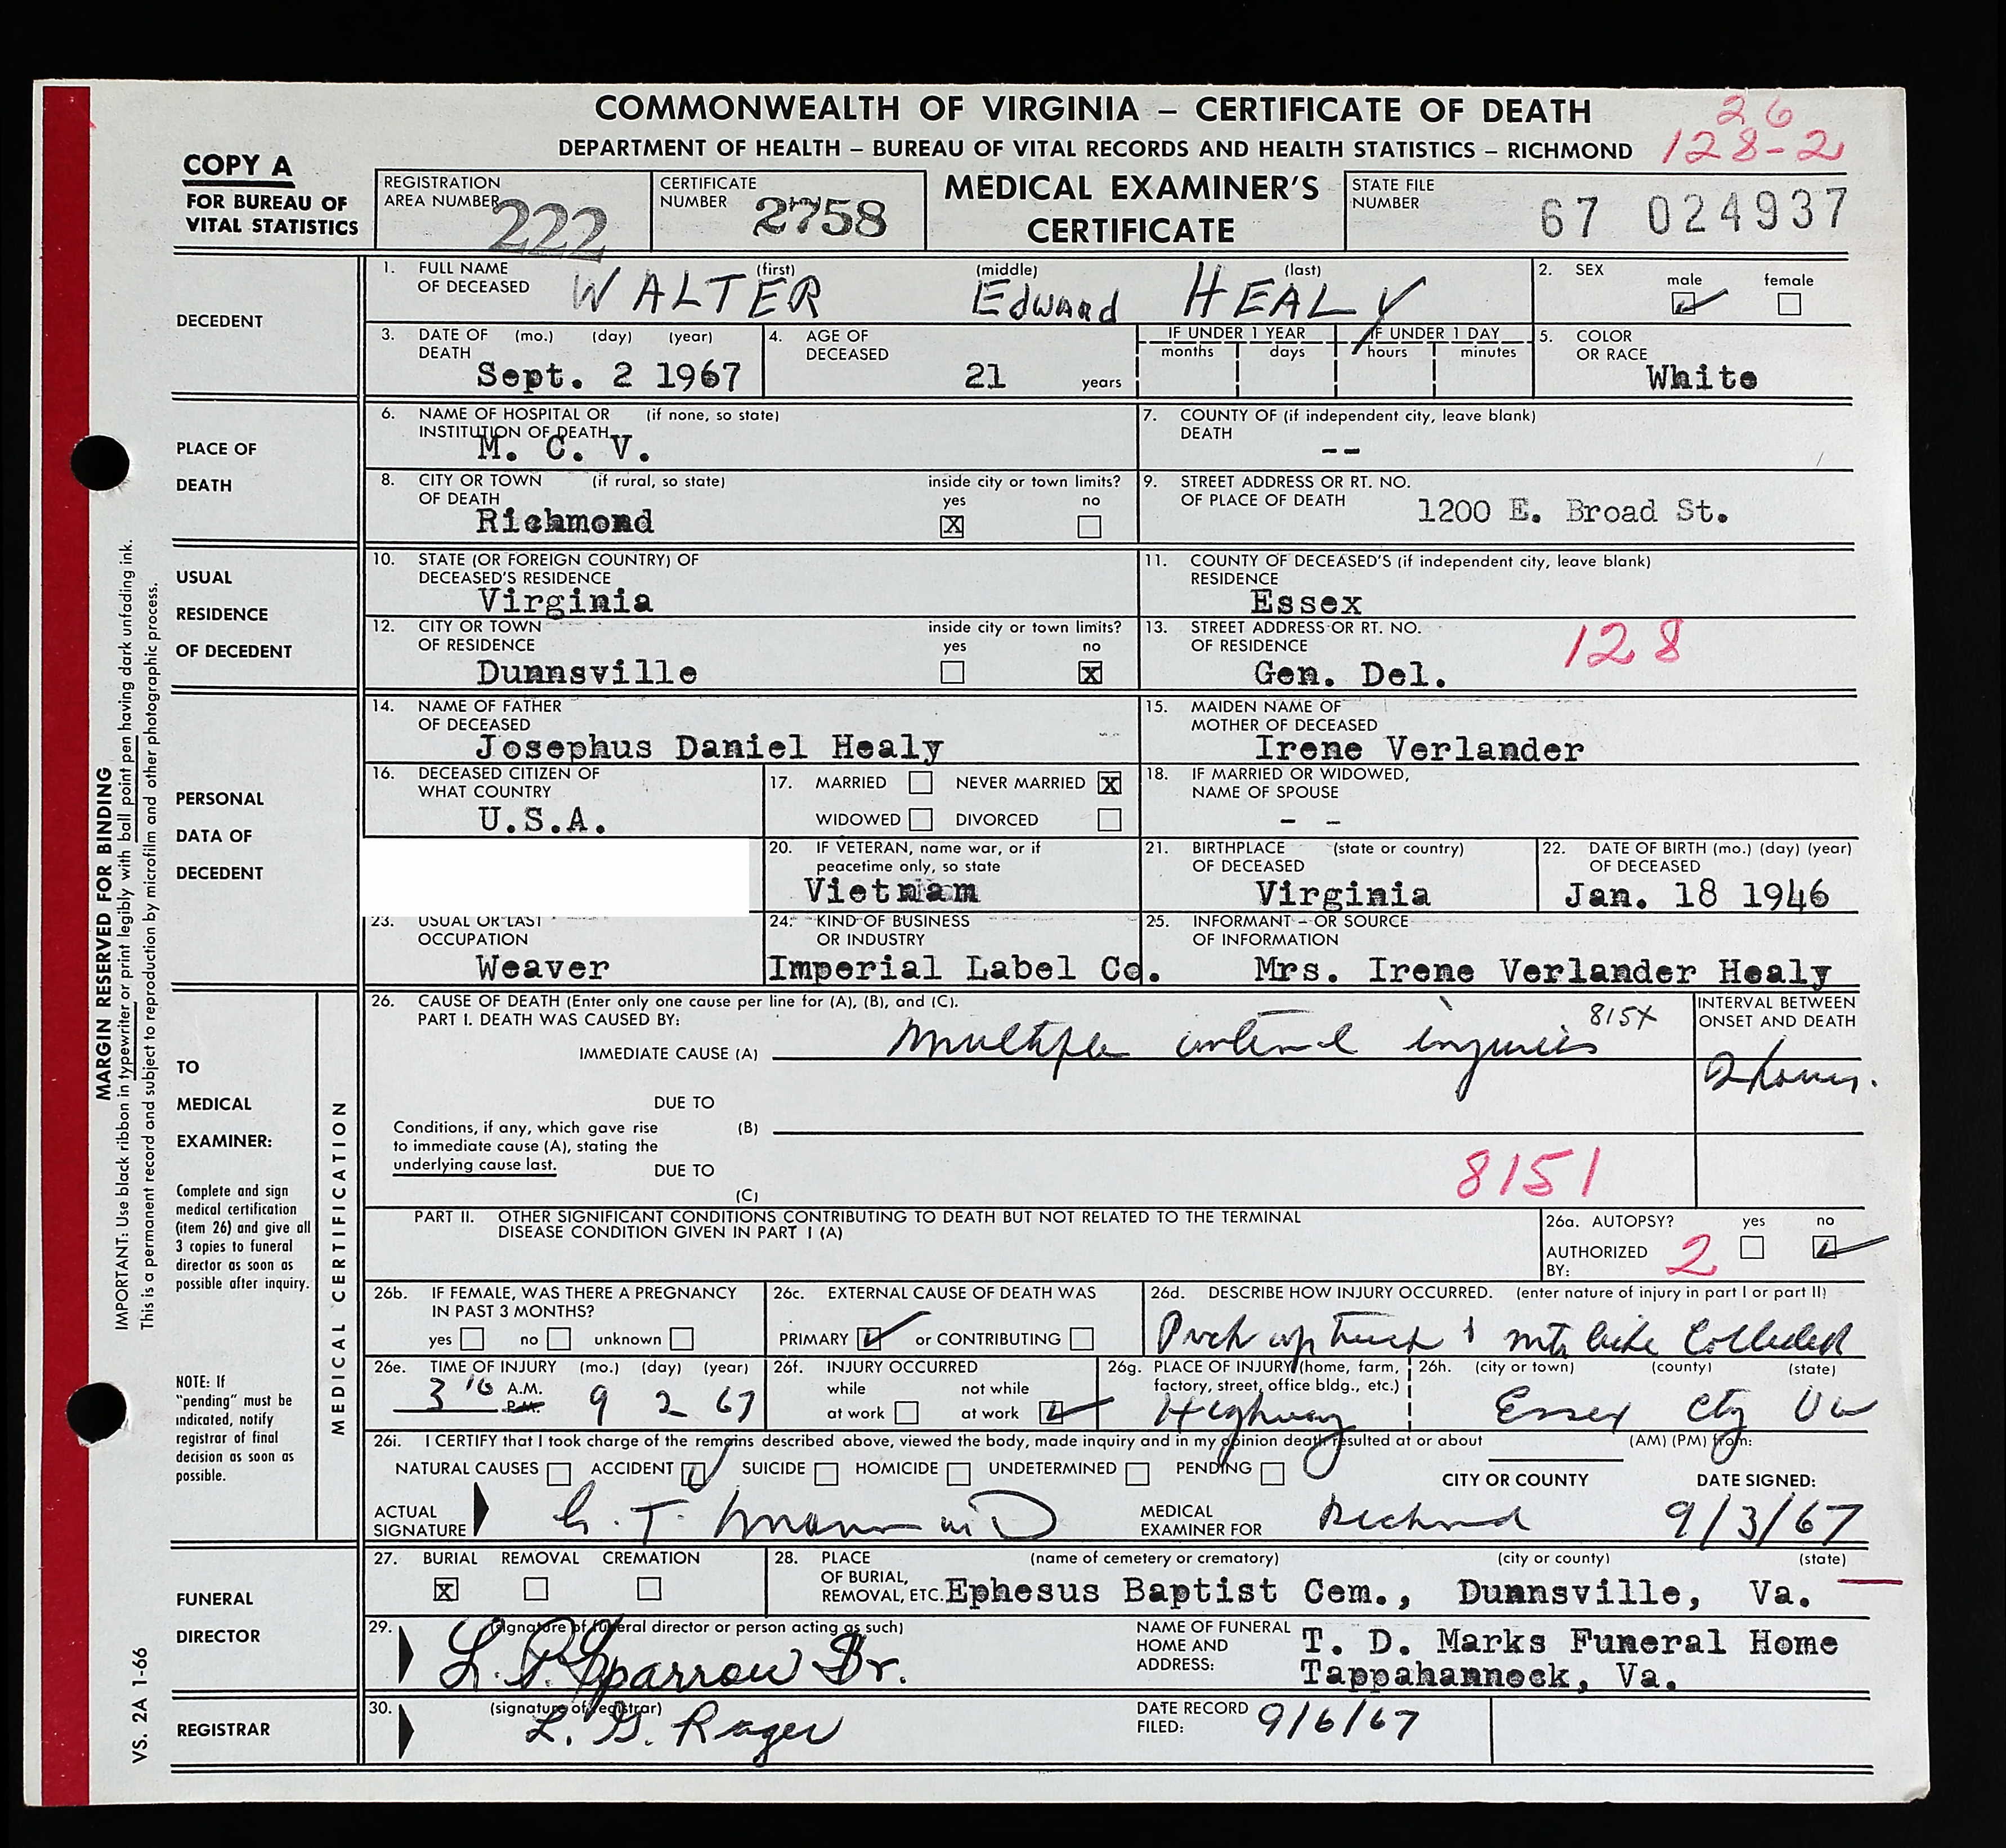 COMMONWEALTH OF VIRGINIA – CERTIFICATE OF DEATH
DEPARTMENT OF HEALTH – BUREAU OF VITAL RECORDS AND HEALTH STATISTICS – RICHMOND
26
128-2
COPY A
FOR BUREAU OF
VITAL STATISTICS
REGISTRATION
AREA NUMBER 222
CERTIFICATE
NUMBER 2758
MEDICAL EXAMINER'S
CERTIFICATE
STATE FILE
NUMBER 67 024937
DECEDENT
1. FULL NAME OF DECEASED (first) (middle) (last)
WALTER Edward HEALY
2. SEX male female
3. DATE OF DEATH (mo.) (day) (year)
Sept. 2 1967
4. AGE OF DECEASED
21 years
IF UNDER 1 YEAR months days
IF UNDER 1 DAY hours minutes
5. COLOR OR RACE
White
PLACE OF
DEATH
6. NAME OF HOSPITAL OR INSTITUTION OF DEATH (if none, so state)
M. C. V.
7. COUNTY OF DEATH (if independent city, leave blank)
--
8. CITY OR TOWN OF DEATH (if rural, so state)
Richmond
inside city or town limits?
yes X no
9. STREET ADDRESS OR RT. NO. OF PLACE OF DEATH
1200 E. Broad St.
USUAL
RESIDENCE
OF DECEDENT
10. STATE (OR FOREIGN COUNTRY) OF DECEASED'S RESIDENCE
Virginia
11. COUNTY OF DECEASED'S RESIDENCE (if independent city, leave blank)
Essex
12. CITY OR TOWN OF RESIDENCE
Dunnsville
inside city or town limits?
yes no X
13. STREET ADDRESS OR RT. NO. OF RESIDENCE
Gen. Del.
128
PERSONAL
DATA OF
DECEDENT
14. NAME OF FATHER OF DECEASED
Josephus Daniel Healy
15. MAIDEN NAME OF MOTHER OF DECEASED
Irene Verlander
16. DECEASED CITIZEN OF WHAT COUNTRY
U.S.A.
17. MARRIED NEVER MARRIED X
WIDOWED DIVORCED
18. IF MARRIED OR WIDOWED, NAME OF SPOUSE
- -
20. IF VETERAN, name war, or if peacetime only, so state
Vietnam
21. BIRTHPLACE OF DECEASED (state or country)
Virginia
22. DATE OF BIRTH OF DECEASED (mo.) (day) (year)
Jan. 18 1946
23. USUAL OR LAST OCCUPATION
Weaver
24. KIND OF BUSINESS OR INDUSTRY
Imperial Label Co.
25. INFORMANT – OR SOURCE OF INFORMATION
Mrs. Irene Verlander Healy
TO
MEDICAL
EXAMINER:
Complete and sign
medical certification
(item 26) and give all
3 copies to funeral
director as soon as
possible after inquiry.
NOTE: If
"pending" must be
indicated, notify
registrar of final
decision as soon as
possible.
MEDICAL CERTIFICATION
26. CAUSE OF DEATH (Enter only one cause per line for (A), (B), and (C).
PART I. DEATH WAS CAUSED BY:
IMMEDIATE CAUSE (A) Multiple internal injuries
815X
INTERVAL BETWEEN
ONSET AND DEATH
2 hours.
DUE TO
(B)
Conditions, if any, which gave rise
to immediate cause (A), stating the
underlying cause last.
DUE TO
(C)
8151
PART II. OTHER SIGNIFICANT CONDITIONS CONTRIBUTING TO DEATH BUT NOT RELATED TO THE TERMINAL
DISEASE CONDITION GIVEN IN PART I (A)
26a. AUTOPSY? yes no
AUTHORIZED
BY:
2
26b. IF FEMALE, WAS THERE A PREGNANCY
IN PAST 3 MONTHS?
yes no unknown
26c. EXTERNAL CAUSE OF DEATH WAS
PRIMARY or CONTRIBUTING
26d. DESCRIBE HOW INJURY OCCURRED. (enter nature of injury in part I or part II)
Pick up truck & mtr bike Collided
26e. TIME OF INJURY (mo.) (day) (year)
3 10 A.M. P.M. 9 2 67
26f. INJURY OCCURRED
while at work not while at work
26g. PLACE OF INJURY (home, farm,
factory, street, office bldg., etc.)
Highway
26h. (city or town) (county) (state)
Essex Cty Va
26i. I CERTIFY that I took charge of the remains described above, viewed the body, made inquiry and in my opinion death resulted at or about (AM) (PM) from:
NATURAL CAUSES ACCIDENT SUICIDE HOMICIDE UNDETERMINED PENDING
CITY OR COUNTY
DATE SIGNED:
ACTUAL
SIGNATURE
MEDICAL
EXAMINER FOR Richmond 9/3/67
FUNERAL
DIRECTOR
27. BURIAL REMOVAL CREMATION
X
28. PLACE OF BURIAL, REMOVAL, ETC. (name of cemetery or crematory) (city or county) (state)
Ephesus Baptist Cem., Dunnsville, Va.
29. (signature of funeral director or person acting as such)
Sparrow
NAME OF FUNERAL
HOME AND
ADDRESS:
T. D. Marks Funeral Home
Tappahannock, Va.
REGISTRAR
30. (signature of registrar)
L. G. Rager
DATE RECORD
FILED: 9/6/67
MARGIN RESERVED FOR BINDING
IMPORTANT: Use black ribbon in typewriter or print legibly with ball point pen having dark unfading ink.
This is a permanent record and subject to reproduction by microfilm and other photographic process.
VS. 2A 1-66